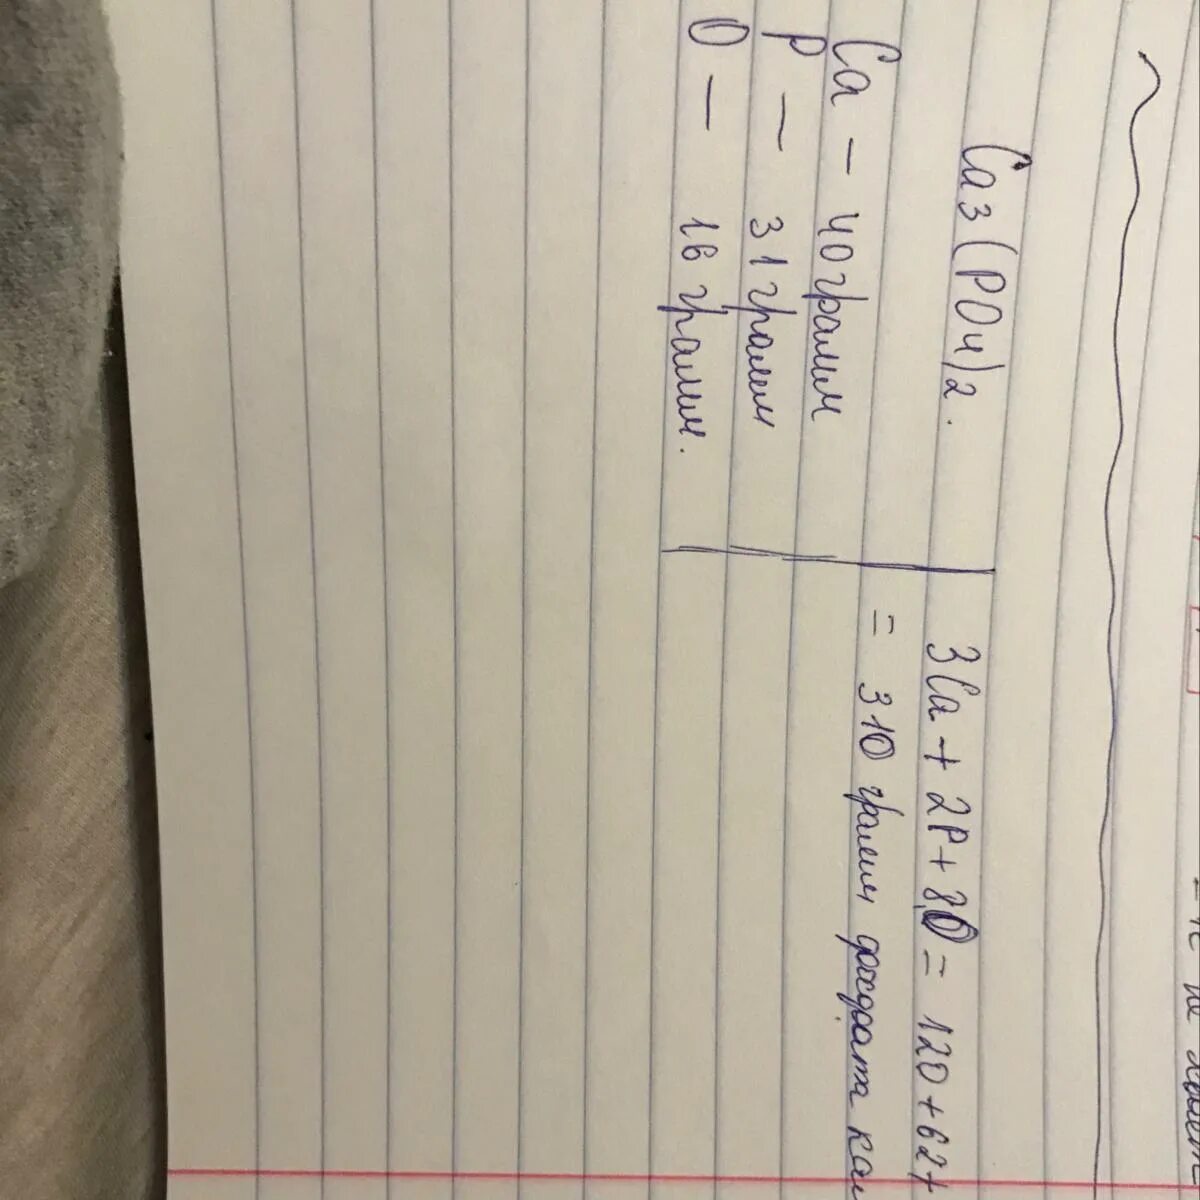 Ca3(PO4)2.
Ca – 40 грамм
P – 31 грамм
O – 16 грамм.
3Ca + 2P + 8O = 120 + 62 +
= 310 грамм фосфата
= не